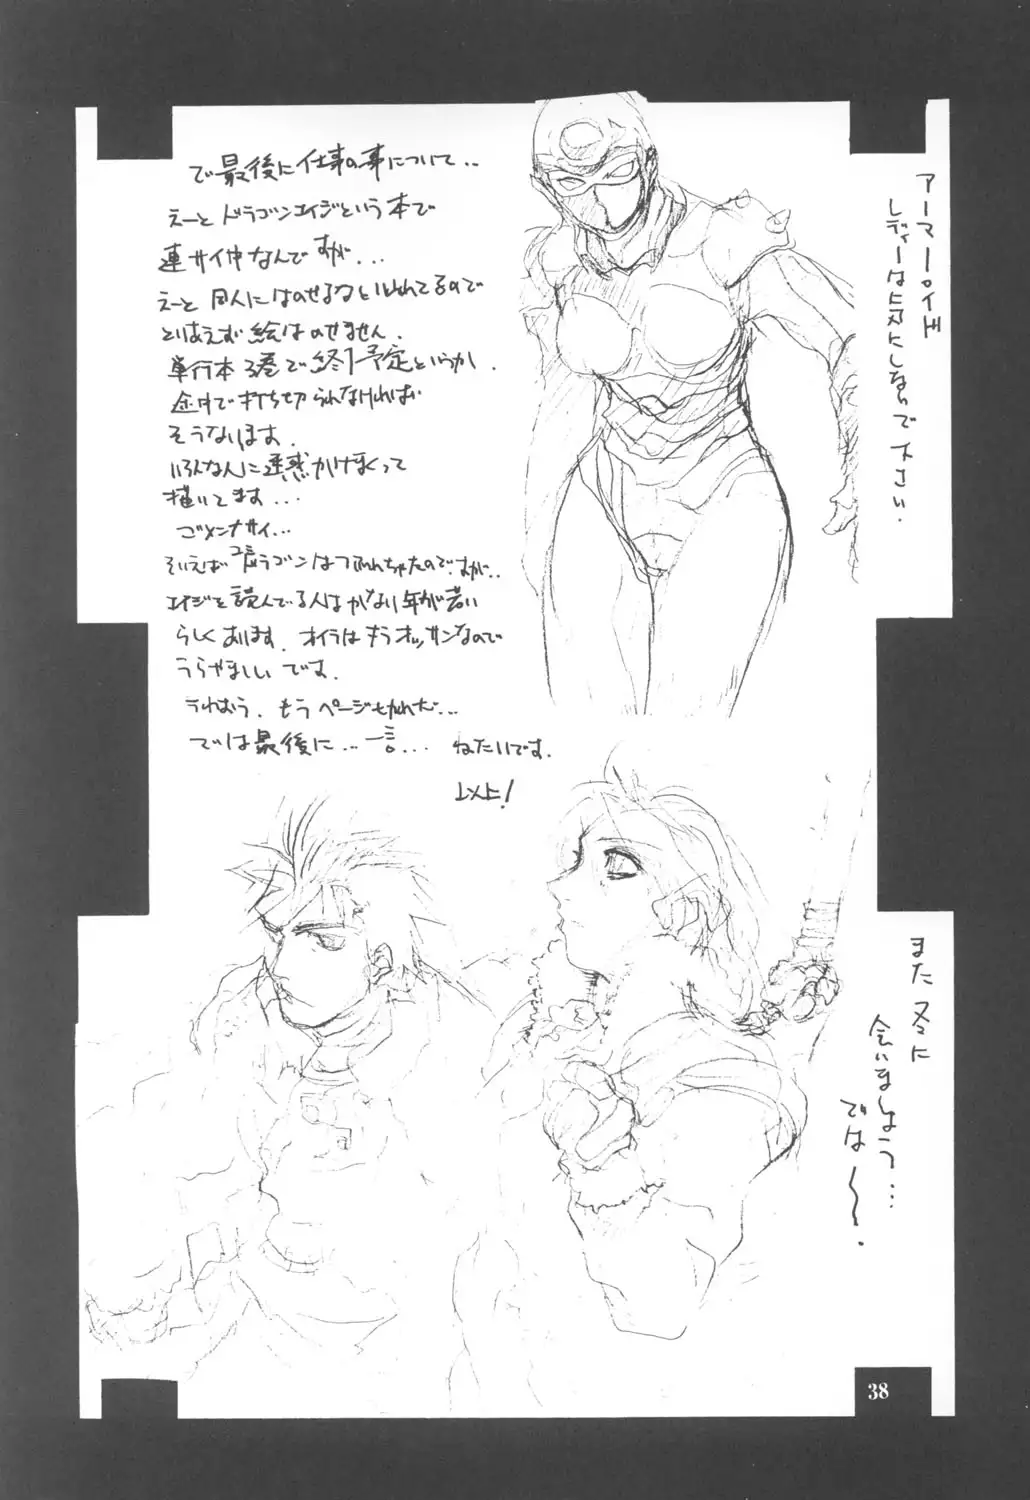 で最後に仕事の事について‥
えーとドラゴンエイジという本で
連サイ中なんですが…
えーと同人にはのせるなといわれてるので
とりあえず絵はのせません.
単行本3巻で終了予定というか.
途中で打ち切られなければ
そうなります.
いろんな人に迷惑かけまくって
描いてます…
ごメンナサイ…
そいえば ドラゴンはつぶれちゃたのですが‥
エイジを読んでる人はかなり年が若い
らしくあります. オイラはもうオッサンなので
うらやましいです.
うわおう. もうページもわれだ…
では最後に…一言… ねたいです.
以上!
アーマーロイド
レディーは しないで下さい.
また冬に
会いましょう…
では〜.
38